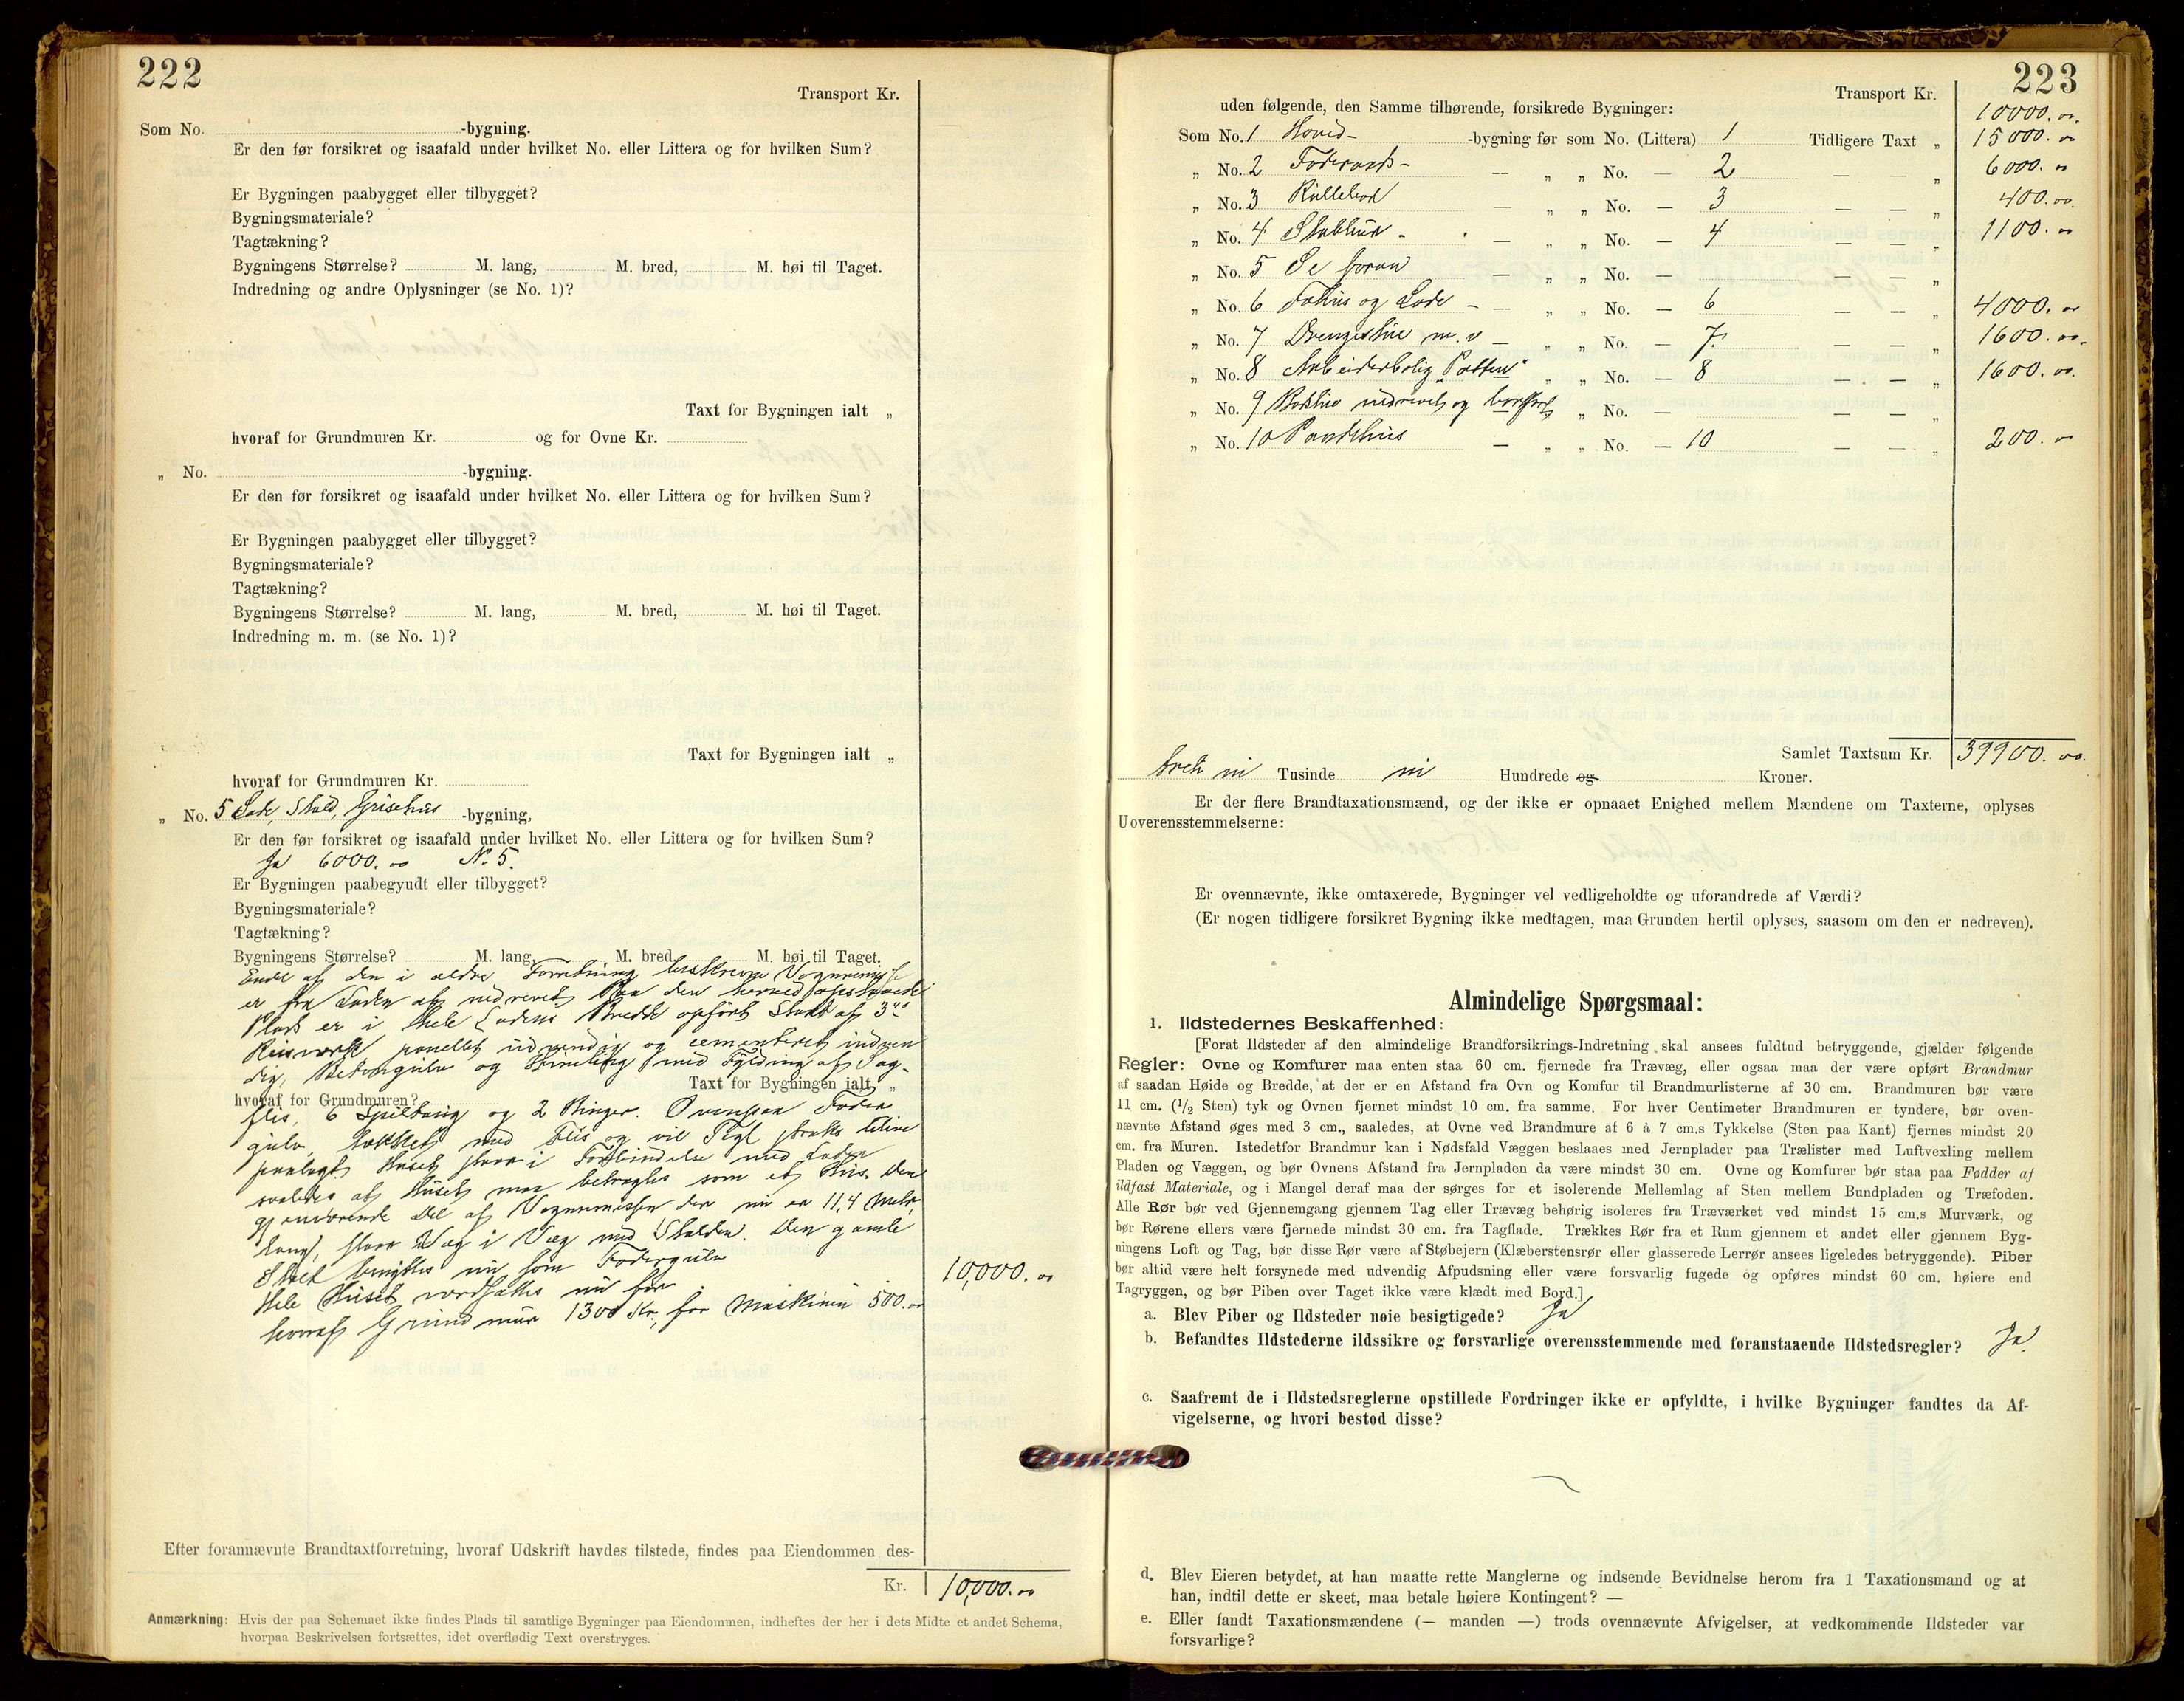 222
Transport Kr.
Som No. -bygning.
Er den før forsikret og isaafald under hvilket No. eller Littera og for hvilken Sum?
Er Bygningen paabygget eller tilbygget?
Bygningsmateriale?
Tagtækning?
Bygningens Størrelse? M. lang, M. bred, M. høi til Taget.
Indredning og andre Oplysninger (se No. 1)?
Taxt for Bygningen ialt „
hvoraf for Grundmuren Kr. og for Ovne Kr.
„ No. -bygning.
Er den før forsikret og isaafald under hvilket No. eller Littera og for hvilken Sum?
Er Bygningen paabygget eller tilbygget?
Bygningsmateriale?
Tagtækning?
Bygningens Størrelse? M. lang, M. bred, M. høi til Taget.
Indredning m. m. (se No. 1)?
Taxt for Bygningen ialt „
hvoraf for Grundmuren Kr.
„ No. 5 Lade, Stald, Grisehus -bygning,
Er den før forsikret og isaafald under hvilket No. eller Littera og for hvilken Sum?
Ja 6000. oo No. 5.
Er Bygningen paabegyndt eller tilbygget?
Bygningsmateriale?
Tagtækning?
Bygningens Størrelse? M. lang, M. bred, M. høi til Taget.
Ende af den i ældre Forretning beskrevne
er fra Laden af nedrevet. Paa den herved
Plads er i hele Ladens Bredde opført Stald af 3"
Reisværk, panellet udvendig og cementeret indven
dig, Betongulv og Himling med Fylding af Sag-
Taxt for Bygningen ialt „
hvoraf for Grundmuren?
flis, 6 Spiltaug og 2 Binger. Ovenpaa Foder
gulv, tækket med Flis og vil Tegl straks blive
paalagt. Huset staar i Forbindelse med Laden
saaledes at Huset maa betragtes som et Hus. Den
gjenværende Del af Vognremissen der nu er 11,4 Meter
lang, staar Væg i Væg med Stalden. Den gamle
Stald benyttes nu som Fodergulv
Hele Huset værdsættes nu for 10,000. oo
hvoraf Grundmur 1300 Kr., for Maskineri 500. oo
Efter forannævnte Brandtaxtforretning, hvoraf Udskrift havdes tilstede, findes paa Eiendommen des-
Kr. 10,000. oo
Anmærkning: Hvis der paa Schemaet ikke findes Plads til samtlige Bygninger paa Eiendommen, indheftes der her i dets Midte et andet Schema,
hvorpaa Beskrivelsen fortsættes, idet overflødig Text overstryges.
223
Transport Kr. 10000. oo.
uden følgende, den Samme tilhørende, forsikrede Bygninger:
Som No. 1 Hoved- -bygning før som No. (Littera) 1 Tidligere Taxt „ 15000. oo
„ No. 2 Føderaads- — „ „ No. — 2 — — „ 6000. oo
„ No. 3 Rullebod — „ „ No. — 3 — — „ 400. oo.
„ No. 4 Stabbur - — „ „ No. — 4 — — „ 1100. oo
„ No. 5 Se foran — „ „ No. — — — „
„ No. 6 Fæhus og Lade - — „ „ No. — 6 — — „ 4000. oo
„ No. 7 Drengestue m. v — „ „ No. — 7. — — „ 1600. oo.
„ No. 8 Arbeiderbolig „ „ No. — 8 — — „ 1600. oo.
„ No. 9 nedrevet og bortført „ No. — — — „
„ No. 10 — „ „ No. — 10 — — „ 200. oo
Samlet Taxtsum Kr. 39900. oo.
treti ni Tusinde ni Hundrede og Kroner.
Er der flere Brandtaxationsmænd, og der ikke er opnaaet Enighed mellem Mændene om Taxterne, oplyses
Uoverensstemmelserne:
Er ovennævnte, ikke omtaxerede, Bygninger vel vedligeholdte og uforandrede af Værdi?
(Er nogen tidligere forsikret Bygning ikke medtagen, maa Grunden hertil oplyses, saasom om den er nedreven).
Almindelige Spørgsmaal:
1. Ildstedernes Beskaffenhed:
[Forat Ildsteder af den almindelige Brandforsikrings-Indretning skal ansees fuldtud betryggende, gjælder følgende
Regler: Ovne og Komfurer maa enten staa 60 cm. fjernede fra Trævæg, eller ogsaa maa der være opført Brandmur
af saadan Høide og Bredde, at der er en Afstand fra Ovn og Komfur til Brandmurlisterne af 30 cm. Brandmuren bør være
11 cm. (1/2 Sten) tyk og Ovnen fjernet mindst 10 cm. fra samme. For hver Centimeter Brandmuren er tyndere, bør oven-
nævnte Afstand øges med 3 cm., saaledes, at Ovne ved Brandmure af 6 à 7 cm.s Tykkelse (Sten paa Kant) fjernes mindst 20
cm. fra Muren. Istedetfor Brandmur kan i Nødsfald Væggen beslaaes med Jernplader paa Trælister med Luftvexling mellem
Pladen og Væggen, og bør Ovnens Afstand fra Jernpladen da være mindst 30 cm. Ovne og Komfurer bør staa paa Fødder af
ildfast Materiale, og i Mangel deraf maa der sørges for et isolerende Mellemlag af Sten mellem Bundpladen og Træfoden.
Alle Rør bør ved Gjennemgang gjennem Tag eller Trævæg behørig isoleres fra Træværket ved mindst 15 cm.s Murværk, og
bør Rørene ellers være fjernede mindst 30 cm. fra Tagflade. Trækkes Rør fra et Rum gjennem et andet eller gjennem Byg-
ningens Loft og Tag, bør disse Rør være af Støbejern (Klæberstensrør eller glasserede Lerrør ansees ligeledes betryggende). Piber
bør altid være helt forsynede med udvendig Afpudsning eller være forsvarlig fugede og opføres mindst 60 cm. høiere end
Tagryggen, og bør Piben over Taget ikke være klædt med Bord.]
a. Blev Piber og Ildsteder nøie besigtigede? Ja
b. Befandtes Ildstederne ildssikre og forsvarlige overensstemmende med foranstaaende Ildstedsregler? Ja.
c. Saafremt de i Ildstedsreglerne opstillede Fordringer ikke er opfyldte, i hvilke Bygninger fandtes da Af-
vigelserne, og hvori bestod disse?
d. Blev Eieren betydet, at han maatte rette Manglerne og indsende Bevidnelse herom fra 1 Taxationsmand og at
han, indtil dette er skeet, maa betale høiere Kontingent? —
e. Eller fandt Taxationsmændene (— manden —) trods ovennævnte Afvigelser, at vedkommende Ildsteder var
forsvarlige?